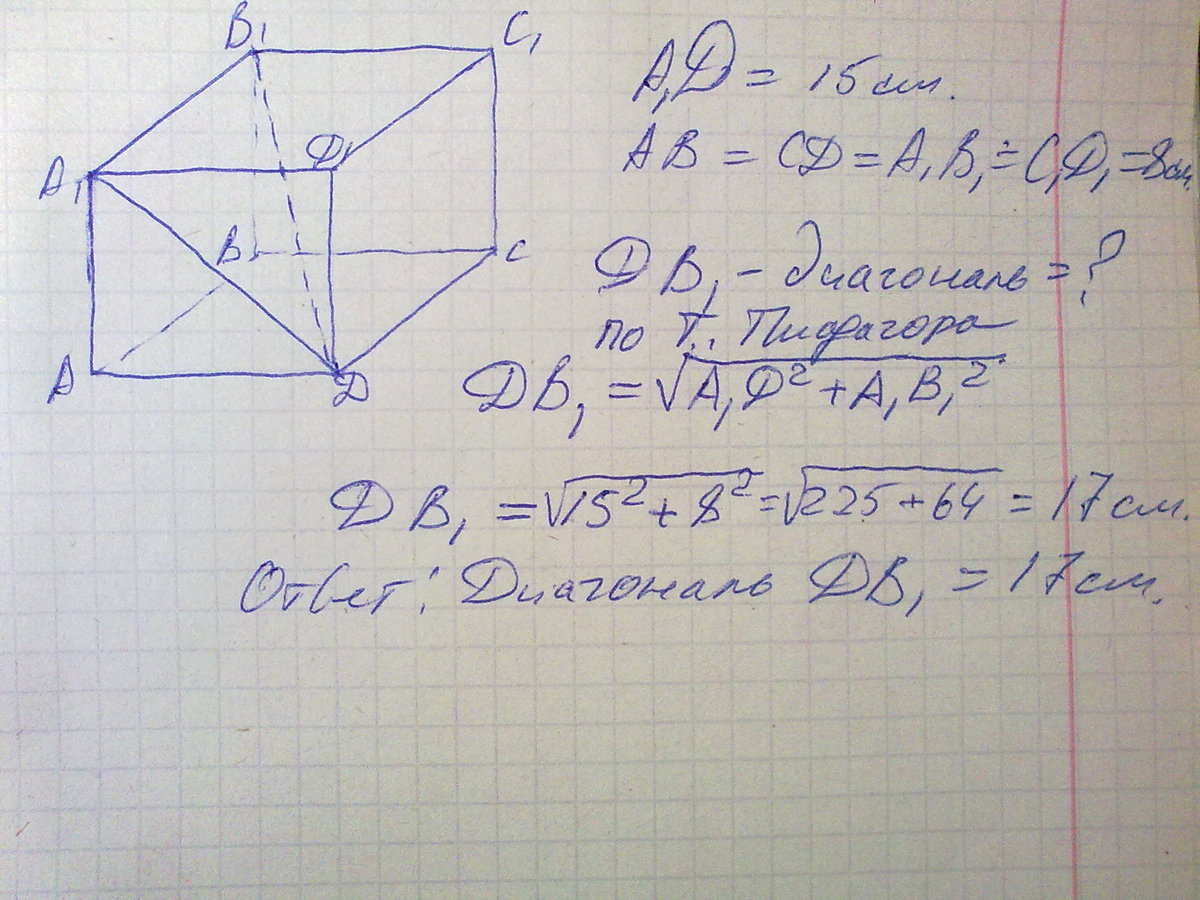 B₁
C₁
A₁
D₁
B
C
A
D
A₁D = 15 см.
AB = CD = A₁B₁ = C₁D₁ = 8 см.
DB₁ - диагональ = ?
по Т. Пифагора
DB₁ = √A₁D² + A₁B₁²
DB₁ = √15² + 8² = √225 + 64 = 17 см.
Ответ: Диагональ DB₁ = 17 см.